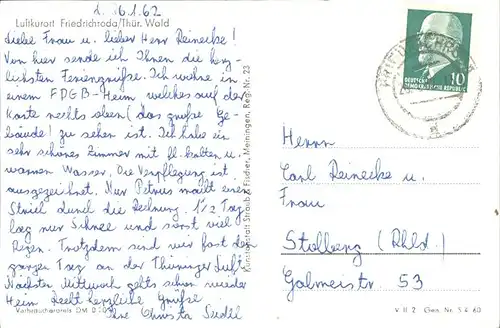 d. 16.1.62
Luftkurort Friedrichroda/Thür. Wald
Liebe Frau u. lieber Herr Reinecke!
Von hier sende ich Ihnen die herz-
lichsten Feriengrüße. Ich wohne in
einem FDGB-Heim welches auf der
Karte rechts oben (das große Ge-
bäude) zu sehen ist. Ich habe ein
sehr schönes Zimmer mit fl. kalten u.
warmen Wasser. Die Verpflegung ist
ausgezeichnet. Nur Petrus macht einen
Strich durch die Rechnung. 1/2 Tag
lag nur Schnee und sonst viel
Regen. Trotzdem sind wir fast den
ganzen Tag an der Thüringer Luft.
Nächsten Mittwoch gehts schon wieder
Heim Recht herzliche Grüße
Ihre Christa Seidl
Verbraucherpreis DM 0,20
Kunstanstalt Straub & Fischer, Meiningen, Reg.-Nr. 23
10
DEUTSCHE
DEMOKRATISCHE REPUBLIK
Herrn
Carl Reinecke u.
Frau
Stolberg (Rhld.)
Galmeistr. 53
V 11 2 Gen. Nr. 5 4 60